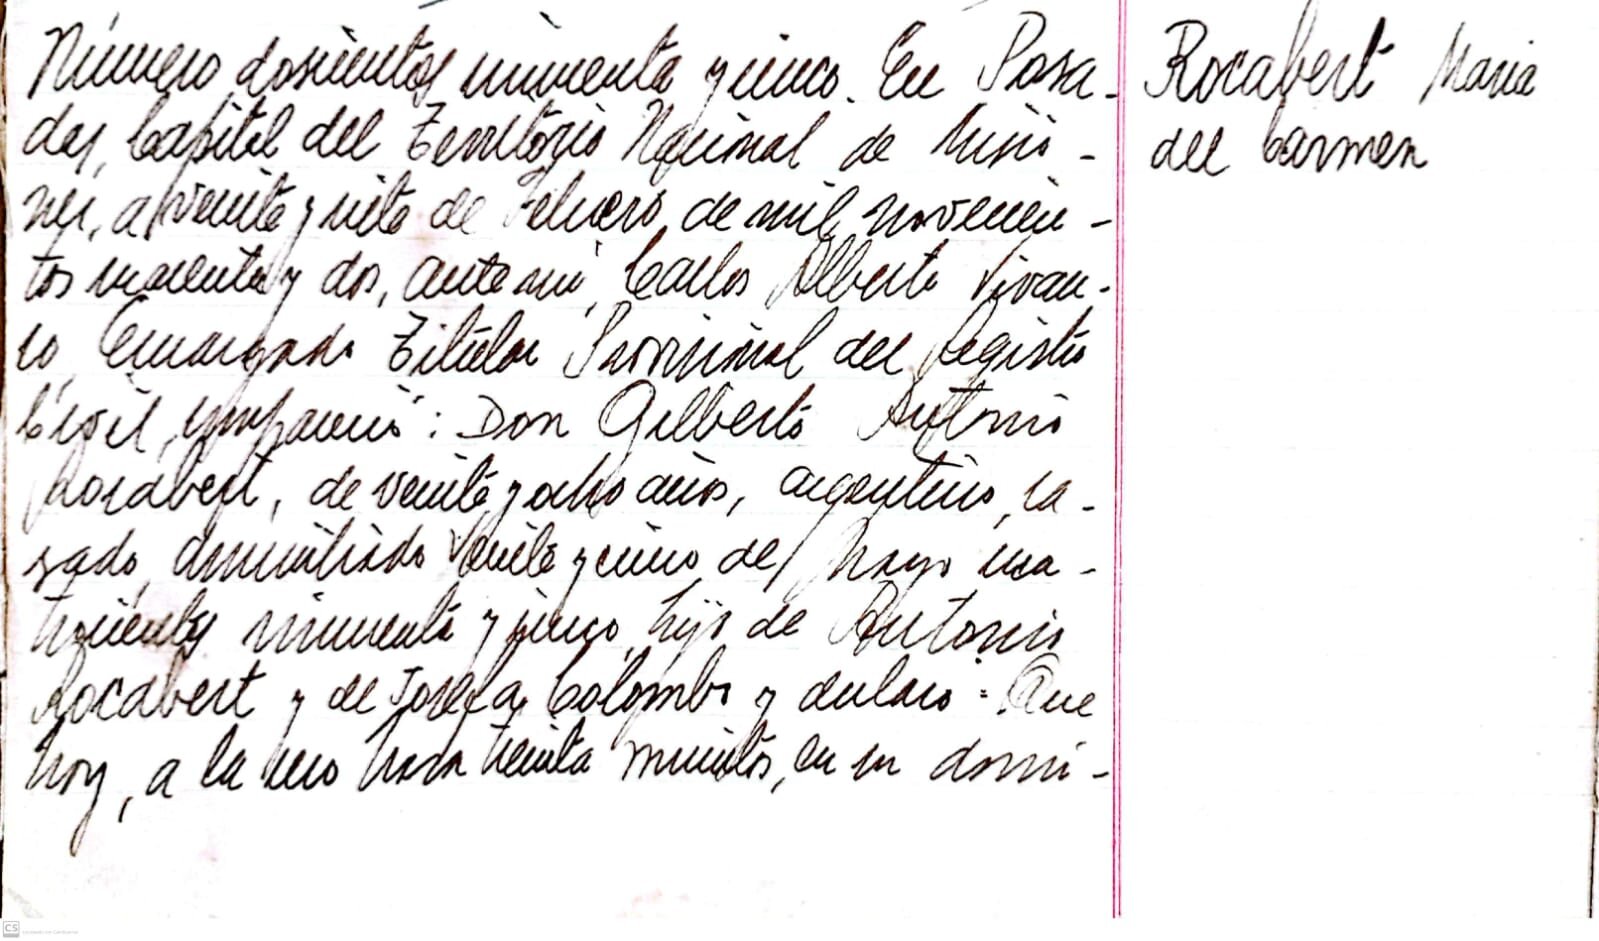 Número doscientos cincuenta y cinco. En Posa-
das, Capital del Territorio Nacional de Misio-
nes, a veinte y siete de Febrero de mil novecien-
tos cuarenta y dos, ante mi, Carlos Alberto Vivan-
co, Encargado Titular Provincial del Registro
Civil, compareció: Don Gilberto Antonio
Rocabert, de veinte y ocho años, argentino, ca-
sado, domiciliado Veinte y cinco de Mayo cua-
trocientos cincuenta y cinco, hijo de Antonio
Rocabert y de Josefa Colombo y declaró: Que
hoy, a la una hora treinta minutos, en su domi-
Rocabert Maria
del Carmen
CS